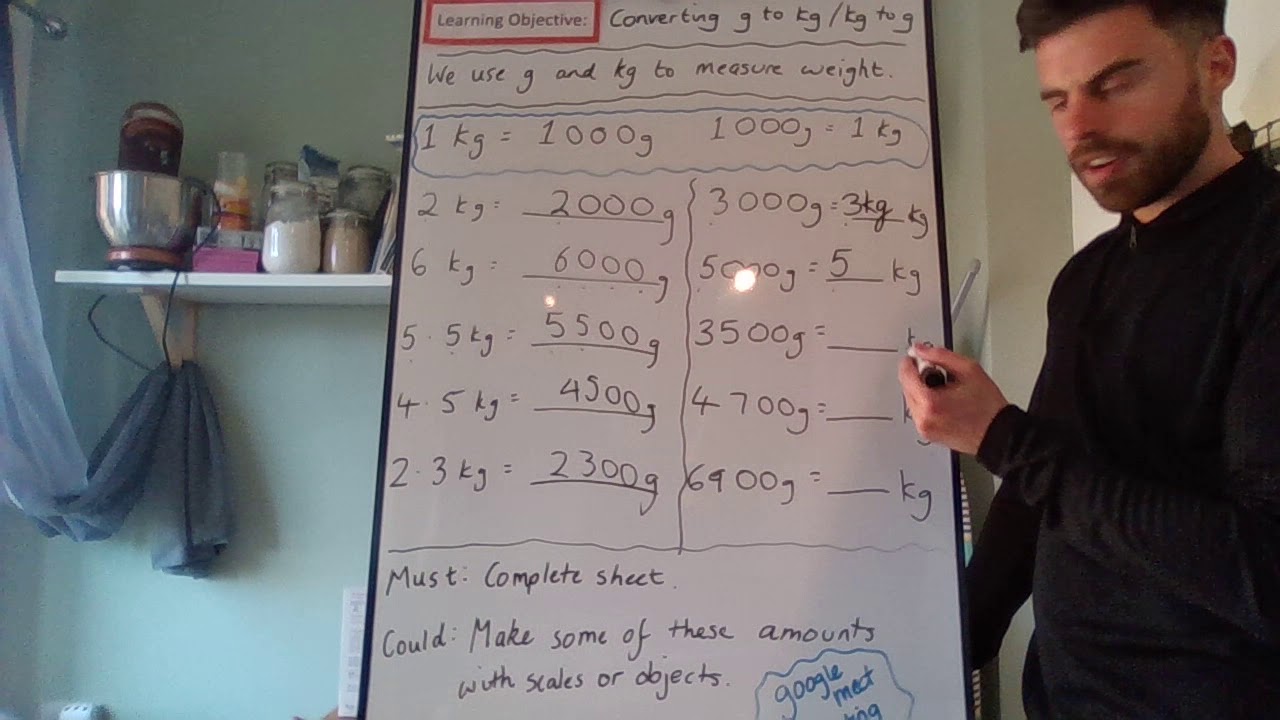 Learning Objective: Converting g to kg/kg to g
We use g and kg to measure weight.
1 kg = 1000g 1000g = 1 kg
2 kg = 2000g
6 kg = 6000g
5.5kg = 5500g
4.5 kg = 4500g
2.3 kg = 2300g
3000g = 3kg kg
5000g = 5 kg
3500g = ___ kg
4700g = ___ k
6900g = ___ kg
Must: Complete sheet.
Could: Make some of these amounts
with scales or objects.
google
meet